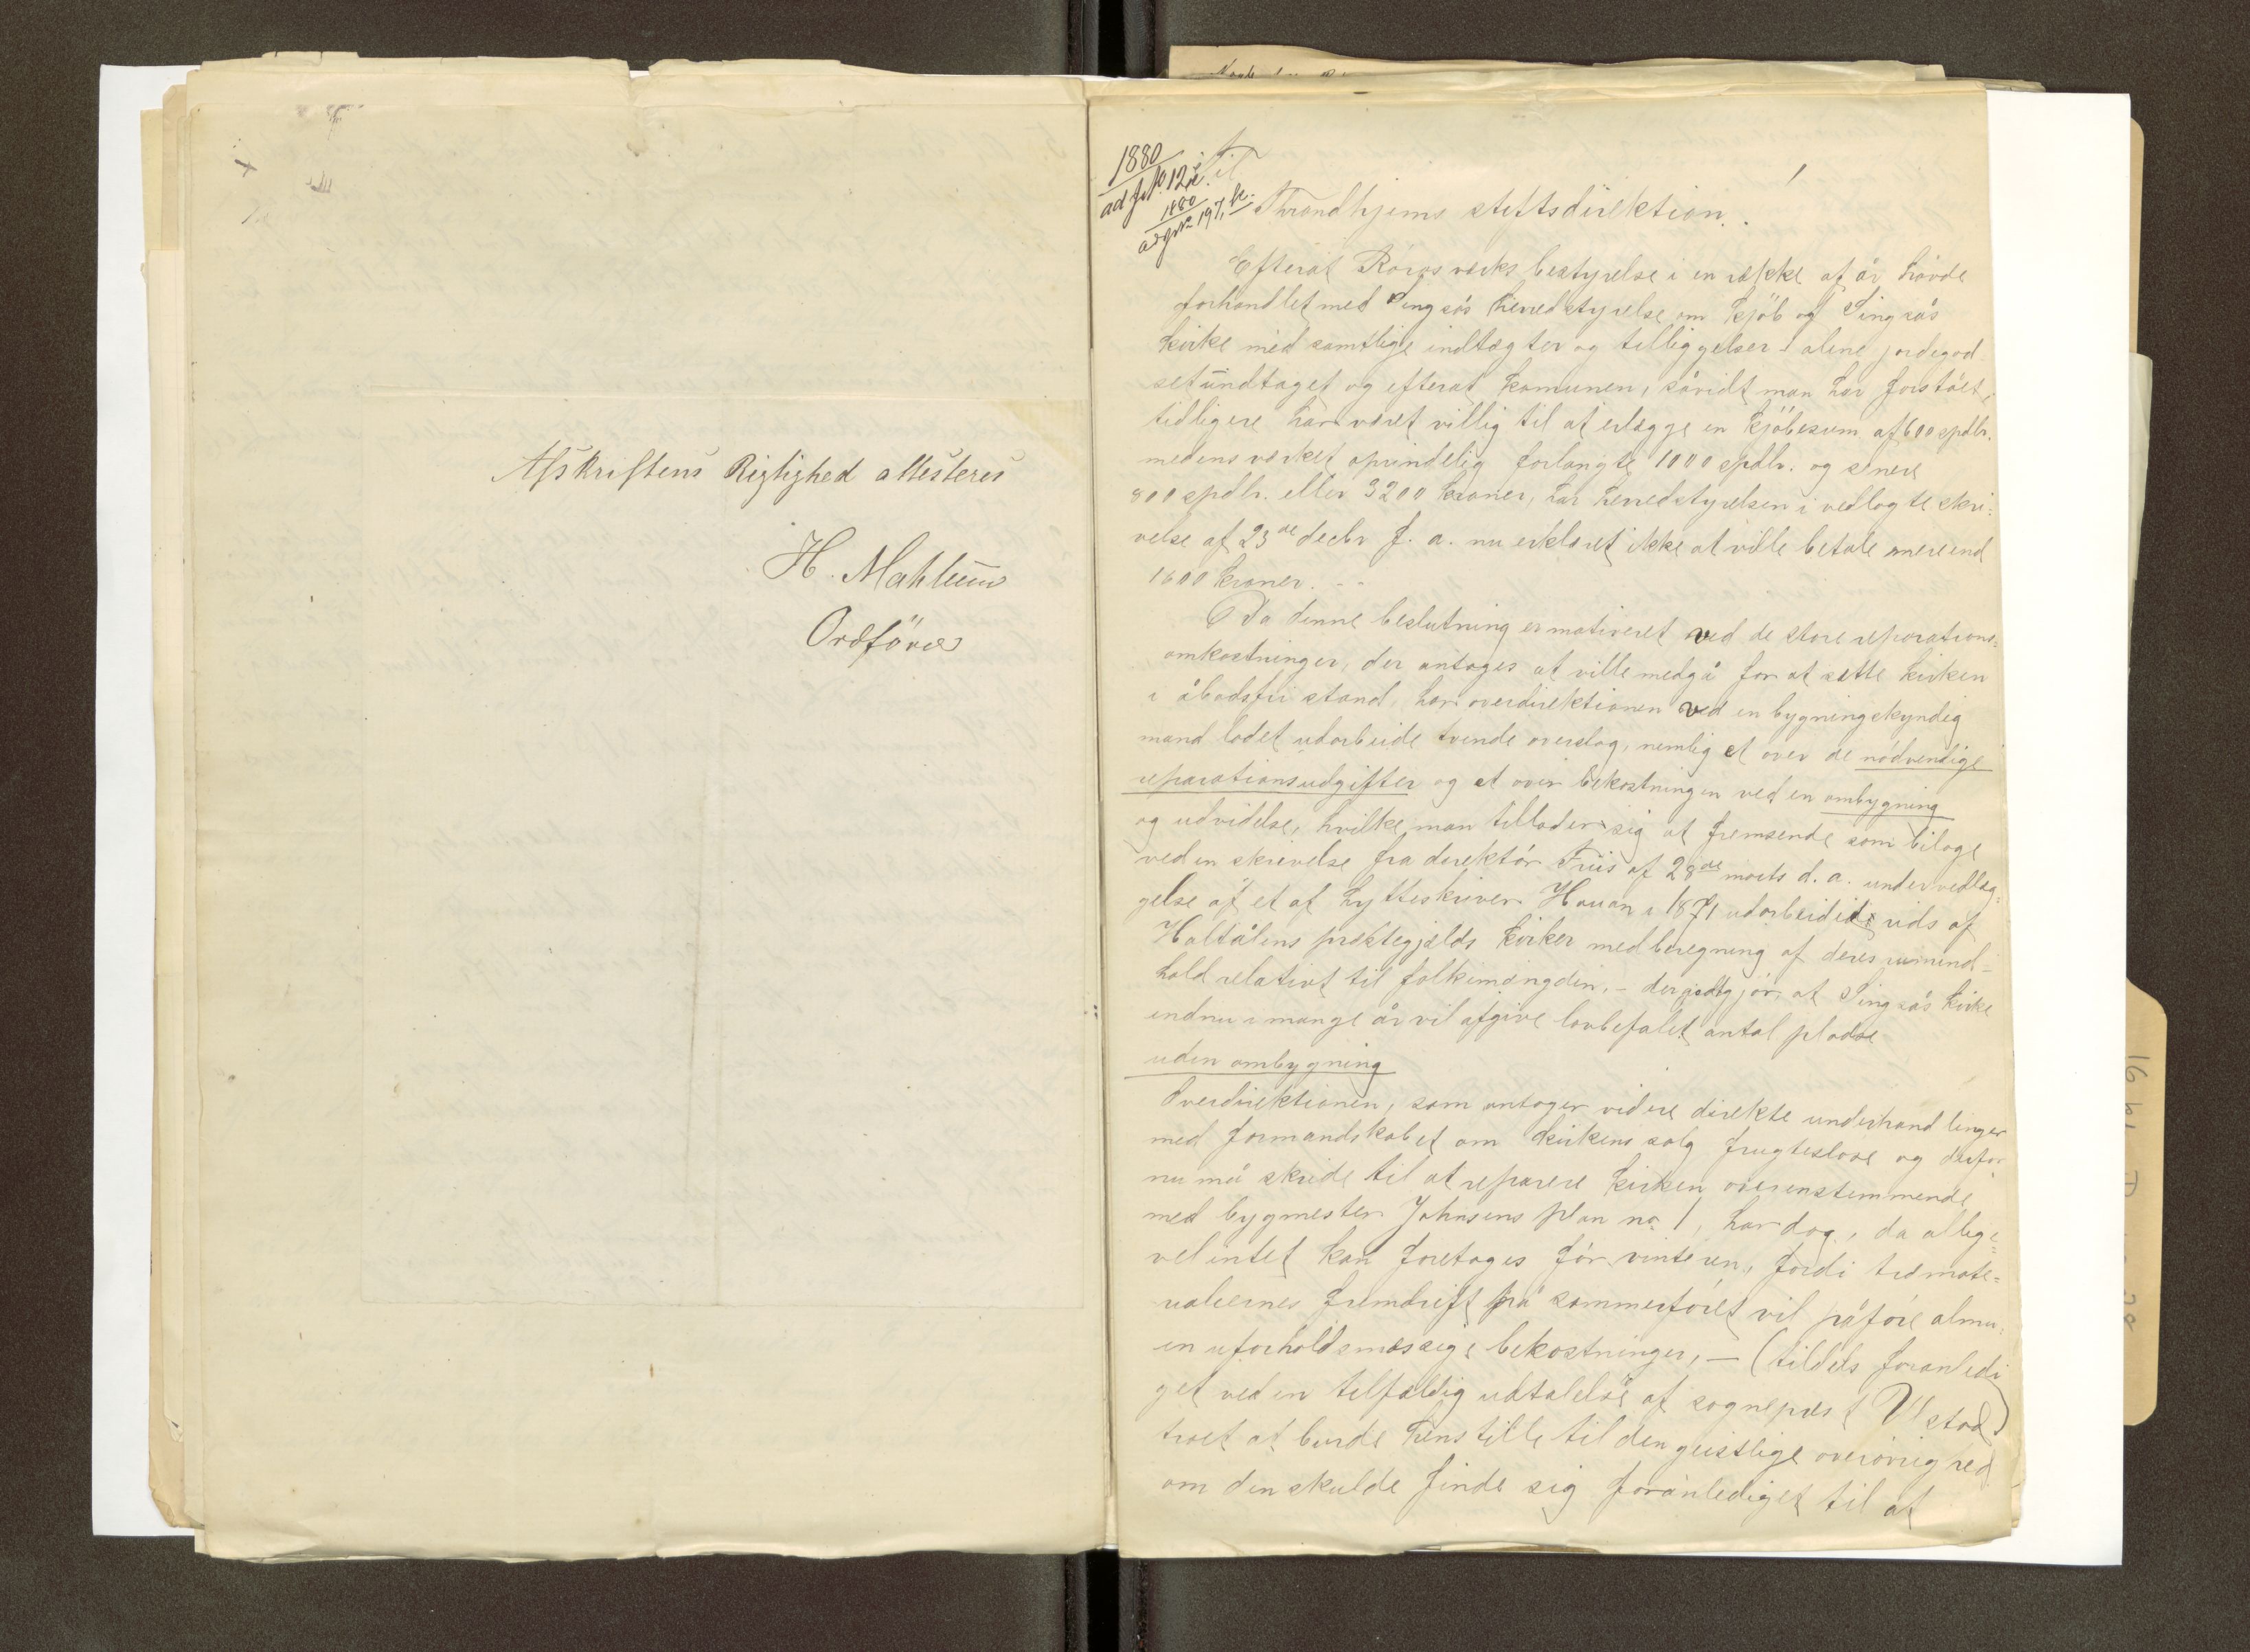 Afskriftens Rigtighed attesteres
H. Mahlum
Ordförer
1880
ad Jnº 12
1880
ad Jnº 197,
Til
Throndhjems stiftsdirektion.
Efterat Röros værks bestyrelse i en række af år havde
forhandlet med Singsås herredstyrelse om kjöb af Singsås
kirke med samtlige indtægter og tilliggelser – alene jordegod-
set undtaget og efterat komunen, såvidt man har forstået,
tidligere har været villig til at erlægge en kjöbesum af 600 spdlr.
medens værket oprindelig forlangte 1000 spdlr. og senere
800 spdlr. eller 3200 kroner, har herredstyrelsen i vedlagte skri-
velse af 23de decbr f. a. nu erklæret ikke at ville betale mere end
1600 kroner. --
Da denne beslutning er motiveret ved de store reparations-
omkostninger, der antages at ville medgå for at sætte kirken
i åbodsfri stand, har overdirektionen ved en bygningskyndig
mand ladet udarbeide tvende overslag, nemlig et over de nödvendige
reparationsudgifter og et over bekostningen ved en ombygning
og udvidelse, hvilke man tillader sig at fremsende som bilage
ved en skrivelse fra direktör Friis af 28de marts d. a. under vedlæg-
gelse af et af hytteskriver Hauan i 1871 udarbeidet rids af
Holtålens præstegjælds kirker med beregning af deres rumind-
hold relativt til folkemængden, – der godtgjör, at Singsås kirke
endnu i mange år vil afgive lovbefalet antal pladse
uden ombygning
Overdirektionen, som antager videre direkte underhandlinger
med formandskabet om kirkens salg frugteslöse og derfor
nu må skride til at reparere kirken overenstemmende
med bygmester Johnsens plan no. 1, har dog, da allige-
vel intet kan foretages för vinteren, fordi træmate-
rialiernes fremdrift på sommerföret vil påföre almu-
en uforholdsmæssige bekostninger, – (tildels foranledi
get ved en tilfældig udtalelse af sognepræst Ustad)
troet at burde henstille til den geistlige overövrighed
om den skulde finde sig foranlediget til at